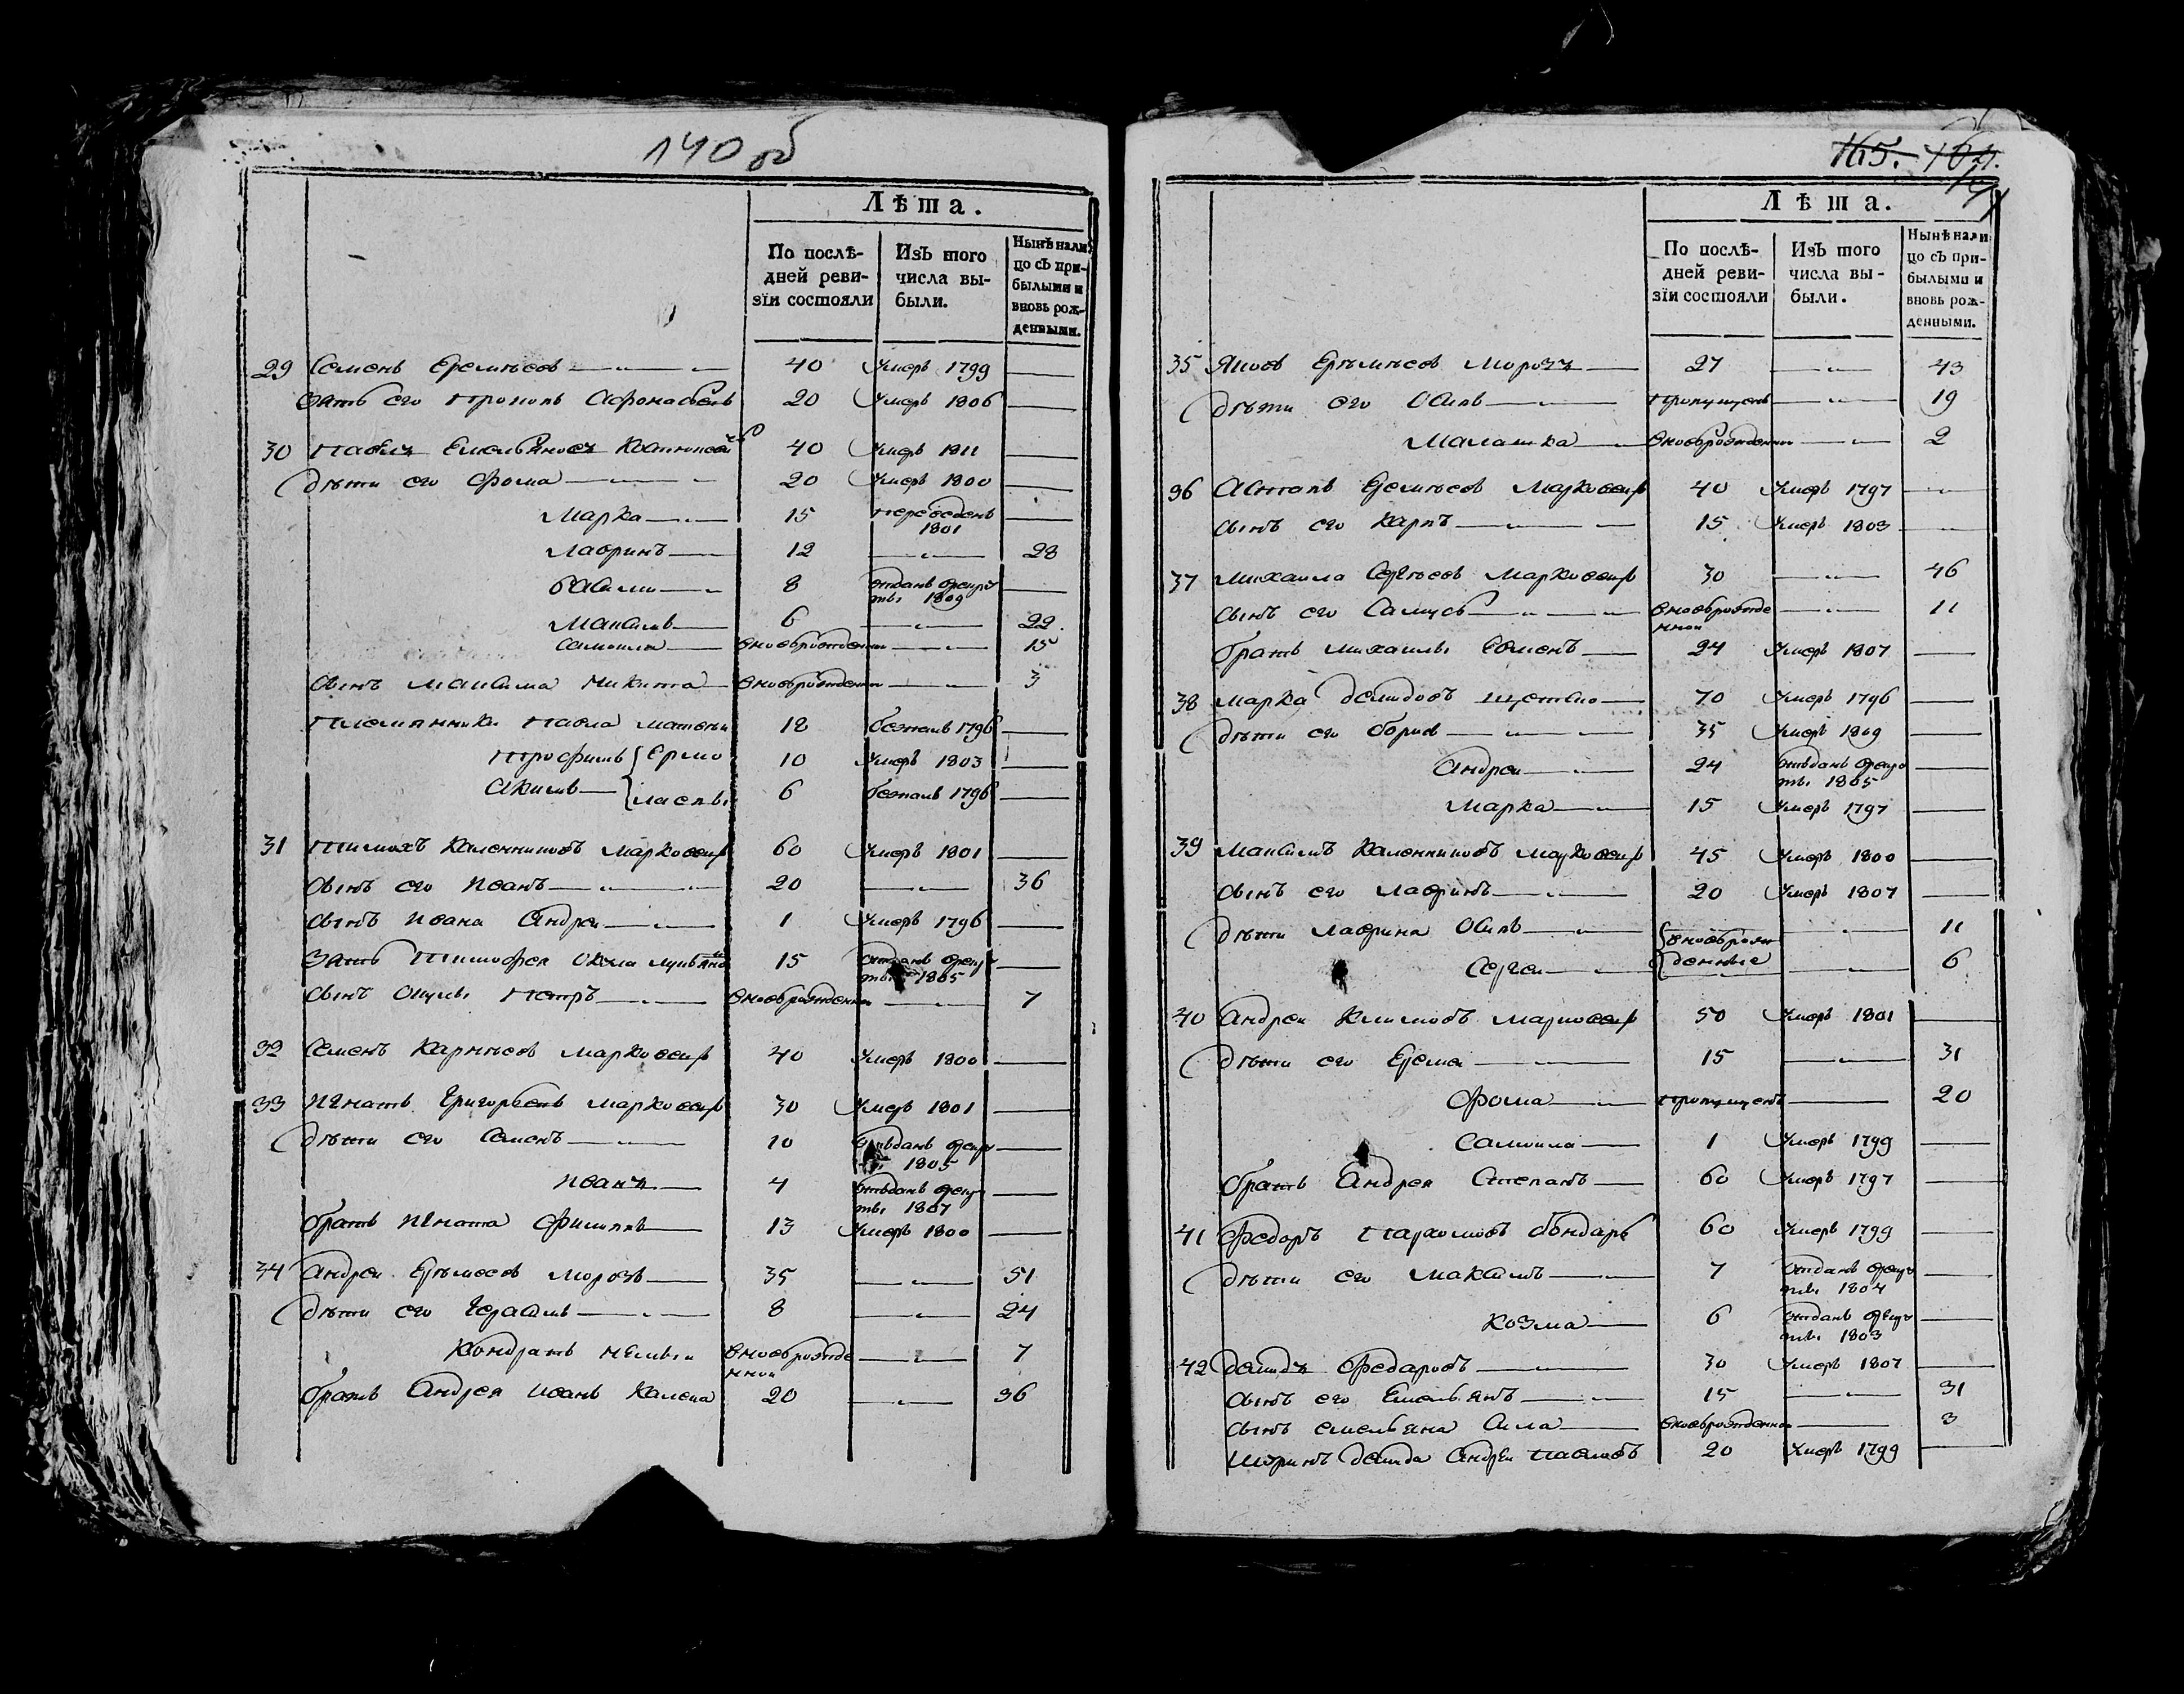 140 об
Лѣта.
По послѣ-
дней реви-
зїи состояли
Изъ того
числа вы-
были.
Нынѣ нали
цо съ при-
былыми и
вновь рож-
денными.
29 Семенъ 40 Умеръ 1799
Зять его Афонасьевъ 20 Умеръ 1806
30 Павелъ Емельяновъ 40 Умеръ 1811
дѣти его Фома 20 Умеръ 1800
Марка 15 переведенъ
1801
Лавринъ 12 28
Васили 8 отданъ врекру
ты 1809
Максимъ 6 22
Самоила вновьрожденны 15
сынъ Максима Никита вновьрожденны 3
племянники Павла Матвеи 12 бежалъ 1796
Трофимъ Ермо 10 Умеръ 1803
Акимъ лаевы 6 бежалъ 1796
31 Тимохъ Каленниковъ Марковец 60 Умеръ 1801
сынъ его Иванъ 20 36
сынъ Ивана Андреи 1 Умеръ 1796
Зять Тимофея 15 отданъ врекру
ты 1805
сынъ Петръ вновьрожденны 7
32 Семенъ Карнѣевъ Марковец 40 Умеръ 1800
33 Игнатъ Григорьевъ Марковец 30 Умеръ 1801
дѣти его Семенъ 10 отъданъ врекру
ты 1805
Иванъ 4 отъданъ врекру
ты 1807
братъ Игната Филипъ 13 Умеръ 1800
34 Андреи Морозъ 35 51
дѣти его Герасимъ 8 24
Кондратъ вновьрожде 7
нной
братъ Андрея Иванъ Калека 20 36
165.
Лѣта.
По послѣ-
дней реви-
зїи состояли
Изъ того
числа вы-
были.
Нынѣ нали
цо съ при-
былыми и
вновь рож-
денными.
35 Яковъ Морозъ 27 43
дѣти его Осипъ пропущенъ 19
Малашка вновьрожденны 2
36 Астапъ Марковец 40 Умеръ 1797
сынъ его Карпъ 15 Умеръ 1803
37 Михаила Сергѣевъ Марковец 30 46
сынъ его Самусь вновьрожде 11
нной
братъ Михаилы Семенъ 24 Умеръ 1807
38 Марка Демидовъ 70 Умеръ 1796
дѣти его Борис 35 Умеръ 1809
Андреи 24 отъданъ врекру
ты 1805
Марка 15 Умеръ 1797
39 Максимъ Каленниковъ Марковец 45 Умеръ 1800
сынъ его Лавринъ 20 Умеръ 1807
дѣти Лаврина Осипъ вновьрож 11
Сергеи денные 6
40 Андреи Климовъ Марковец 50 Умеръ 1801
дѣти его Ерема 15 31
Фома пропущенъ 20
Самоила 1 Умеръ 1799
братъ Андрея Степанъ 60 Умеръ 1797
41 Федоръ Пархомовъ Бондарь 60 Умеръ 1799
дѣти его Максимъ 7 отданъ врекру
ты 1804
Козма 6 отданъ врекру
ты 1803
42 Федаровъ 30 Умеръ 1807
сынъ его Емельянъ 15 31
сынъ Емельяна Сила вновьрожденно 3
Шуринъ Андреи Павловъ 20 Умеръ 1799